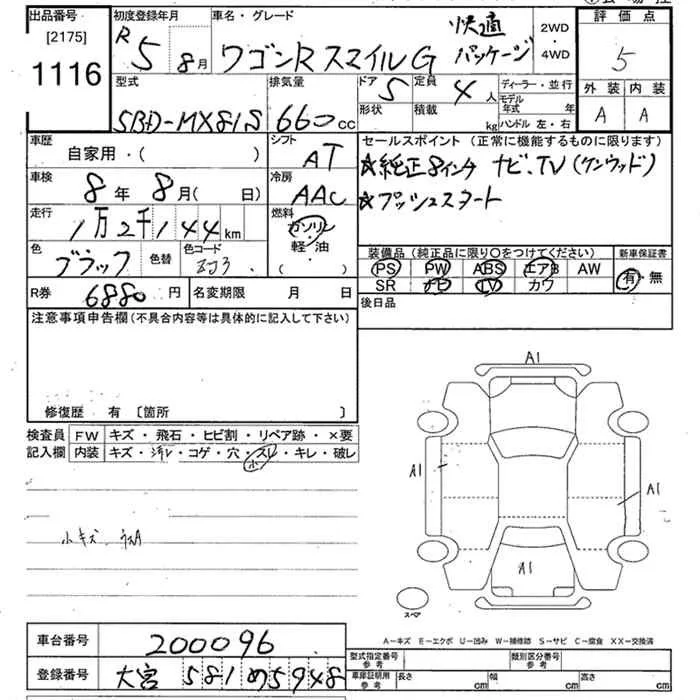 出品番号 初度登録年月 車名・グレード 評価点
[2175] R 5 8月 ワゴンR スマイル G 快適パッケージ 2WD・4WD 5
1116
型式 排気量 ドア 5 定員 4人 ディーラー・並行 外装 内装
5BD-MX81S 660cc 形状 積載 kg モデル年式 年 ハンドル 左・右 A A
車歴 自家用・( ) シフト AT セールスポイント(正常に機能するものに限ります)
車検 8年 8月( 日) 冷房 AAC ☆純正8インチ ナビ、TV(ケンウッド)
☆プッシュスタート
走行 1万2千144km 燃料 ガソリン・軽油 ( )
色 ブラック 色替 色コード ZJ3
装備品(純正品に限り○をつけてください) 新車保証書
PS PW ABS エアB AW 有・無
SR ナビ TV カワ
R券 6880円 名変期限 月 日 後日品
注意事項申告欄(不具合内容等は具体的に記入して下さい)
修復歴 有 〔箇所 〕
検査員 FW キズ・飛石・ヒビ割・リペア跡・×要
記入欄 内装 キズ・汚レ・コゲ・穴・スレ・キレ・破レ
小
小キズ、ウスA
A1
A1
A1
A1
スペア
A－キズ E－エクボ U－凹み W－補修跡 S－サビ C－腐食 XX－交換済
車台番号 200096
登録番号 大宮 581 め 5948
型式指定番号 参考 類別区分番号 参考
車庫証明用 参考 長さ cm 幅 cm 高さ cm